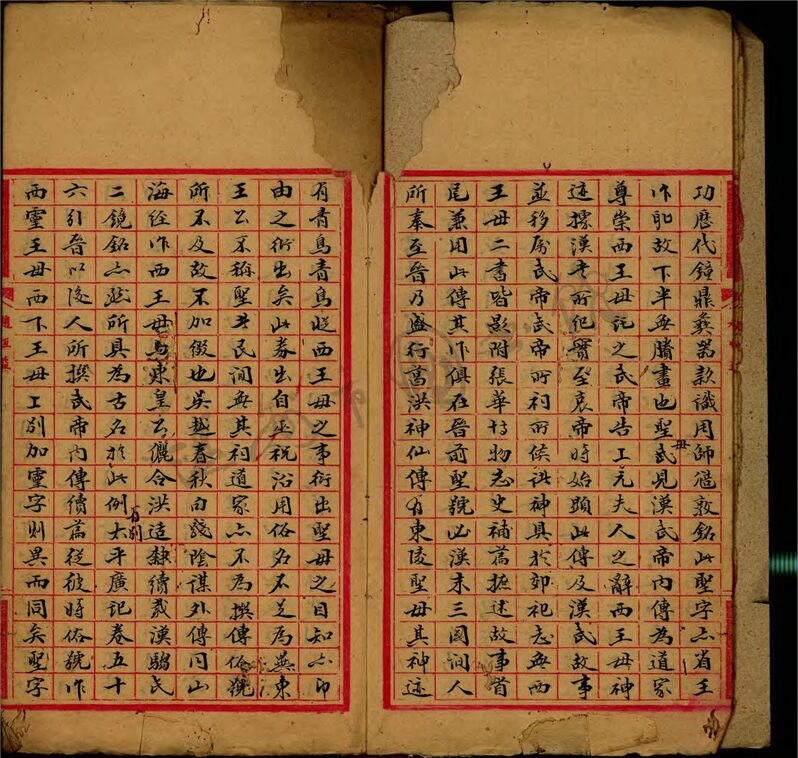 功歷代鐘鼎彝器款識用師𩛥敦銘此聖字亦省王
作耶故下半無賸畫也聖母見漢武帝內傳為道家
尊崇西王母託之武帝告上元夫人之辭西王母神
迹據漢書所紀實至哀帝時始顯此傳及漢武故事
並移屬武帝武帝所祠所侯諸神具於郊祀志無西
王母二書皆影附張華博物志史補舊摭述故事首
尾兼用此傳其作俱在晉前聖號必漢末三國間人
所奉至晉乃盛行葛洪神仙傳有東陵聖母其神迹
有青鳥青鳥從西王母之事衍出聖母之目知亦即
由之衍出矣此券出自巫祝沿用俗名不足為異東
王公不稱聖者民間無其祠道家亦不為撰傳俗號
所不及故不加徵也吳越春秋向錢陰謀外傳同山
海經作西王母與東皇公儷合洪造隸續載漢騶氏
二鏡銘亦然所具為古名於此例有別太平廣記卷五十
六引晉以後人所撰武帝內傳續篇從彼時俗號作
西靈王母西下王母上別加靈字則異而同矣聖字